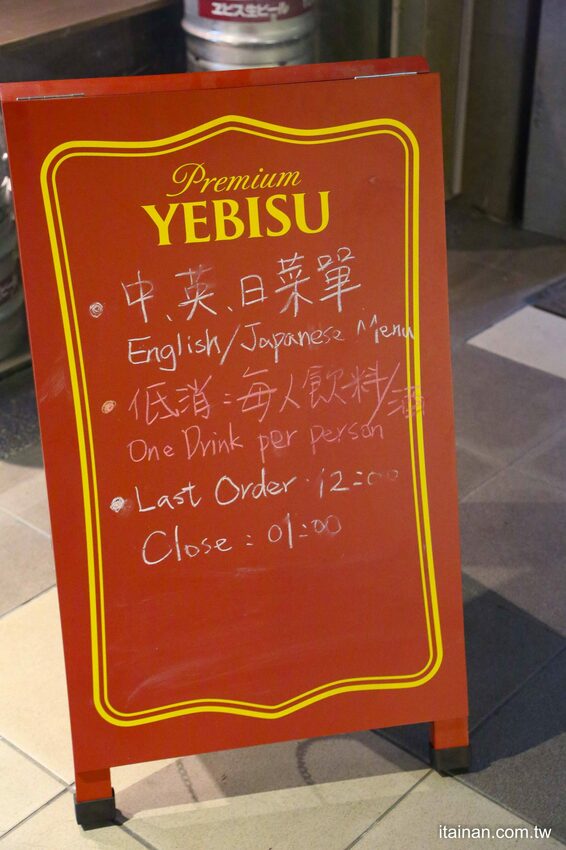 ヱビス生ビール
Premium
YEBISU
中、英、日菜單
English/Japanese Menu
低消:每人飲料/酒
One Drink per person
Last Order:12:00
Close:01:00
itainan.com.tw